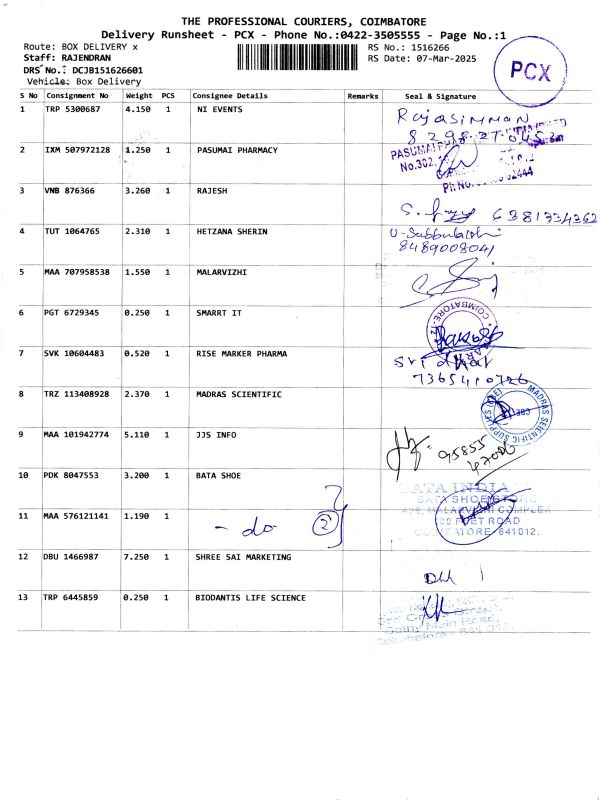 THE PROFESSIONAL COURIERS, COIMBATORE
Delivery Runsheet - PCX - Phone No.:0422-3505555 - Page No.:1
Route: BOX DELIVERY x
RS No.: 1516266
Staff: RAJENDRAN
RS Date: 07-Mar-2025
DRS No.: DCJB151626601
Vehicle: Box Delivery
PCX
S No Consignment No Weight PCS Consignee Details Remarks Seal & Signature
1 TRP 5300687 4.150 1 NI EVENTS Rajasimman
2 IXM 507972128 1.250 1 PASUMAI PHARMACY
3 VNB 876366 3.260 1 RAJESH 6381334362
4 TUT 1064765 2.310 1 HETZANA SHERIN
8489008041
5 MAA 707958538 1.550 1 MALARVIZHI
6 PGT 6729345 0.250 1 SMARRT IT COIMBATORE-12
7 SVK 10604483 0.520 1 RISE MARKER PHARMA Sridhar
7365410726
8 TRZ 113408928 2.370 1 MADRAS SCIENTIFIC MADRAS SCIENTIFIC SUPPLIES (CBE) CBE
9 MAA 101942774 5.110 1 JJS INFO 95855
47006
10 PDK 8047553 3.200 1 BATA SHOE BATA INDIA
BATA SHOE STORE
11 MAA 576121141 1.190 1 - do - 2 MALARVIZHI COMPLEX
FEET ROAD
COIMBATORE 641012.
12 DBU 1466987 7.250 1 SHREE SAI MARKETING
13 TRP 6445859 0.250 1 BIODANTIS LIFE SCIENCE
Coimbatore - 641 012.